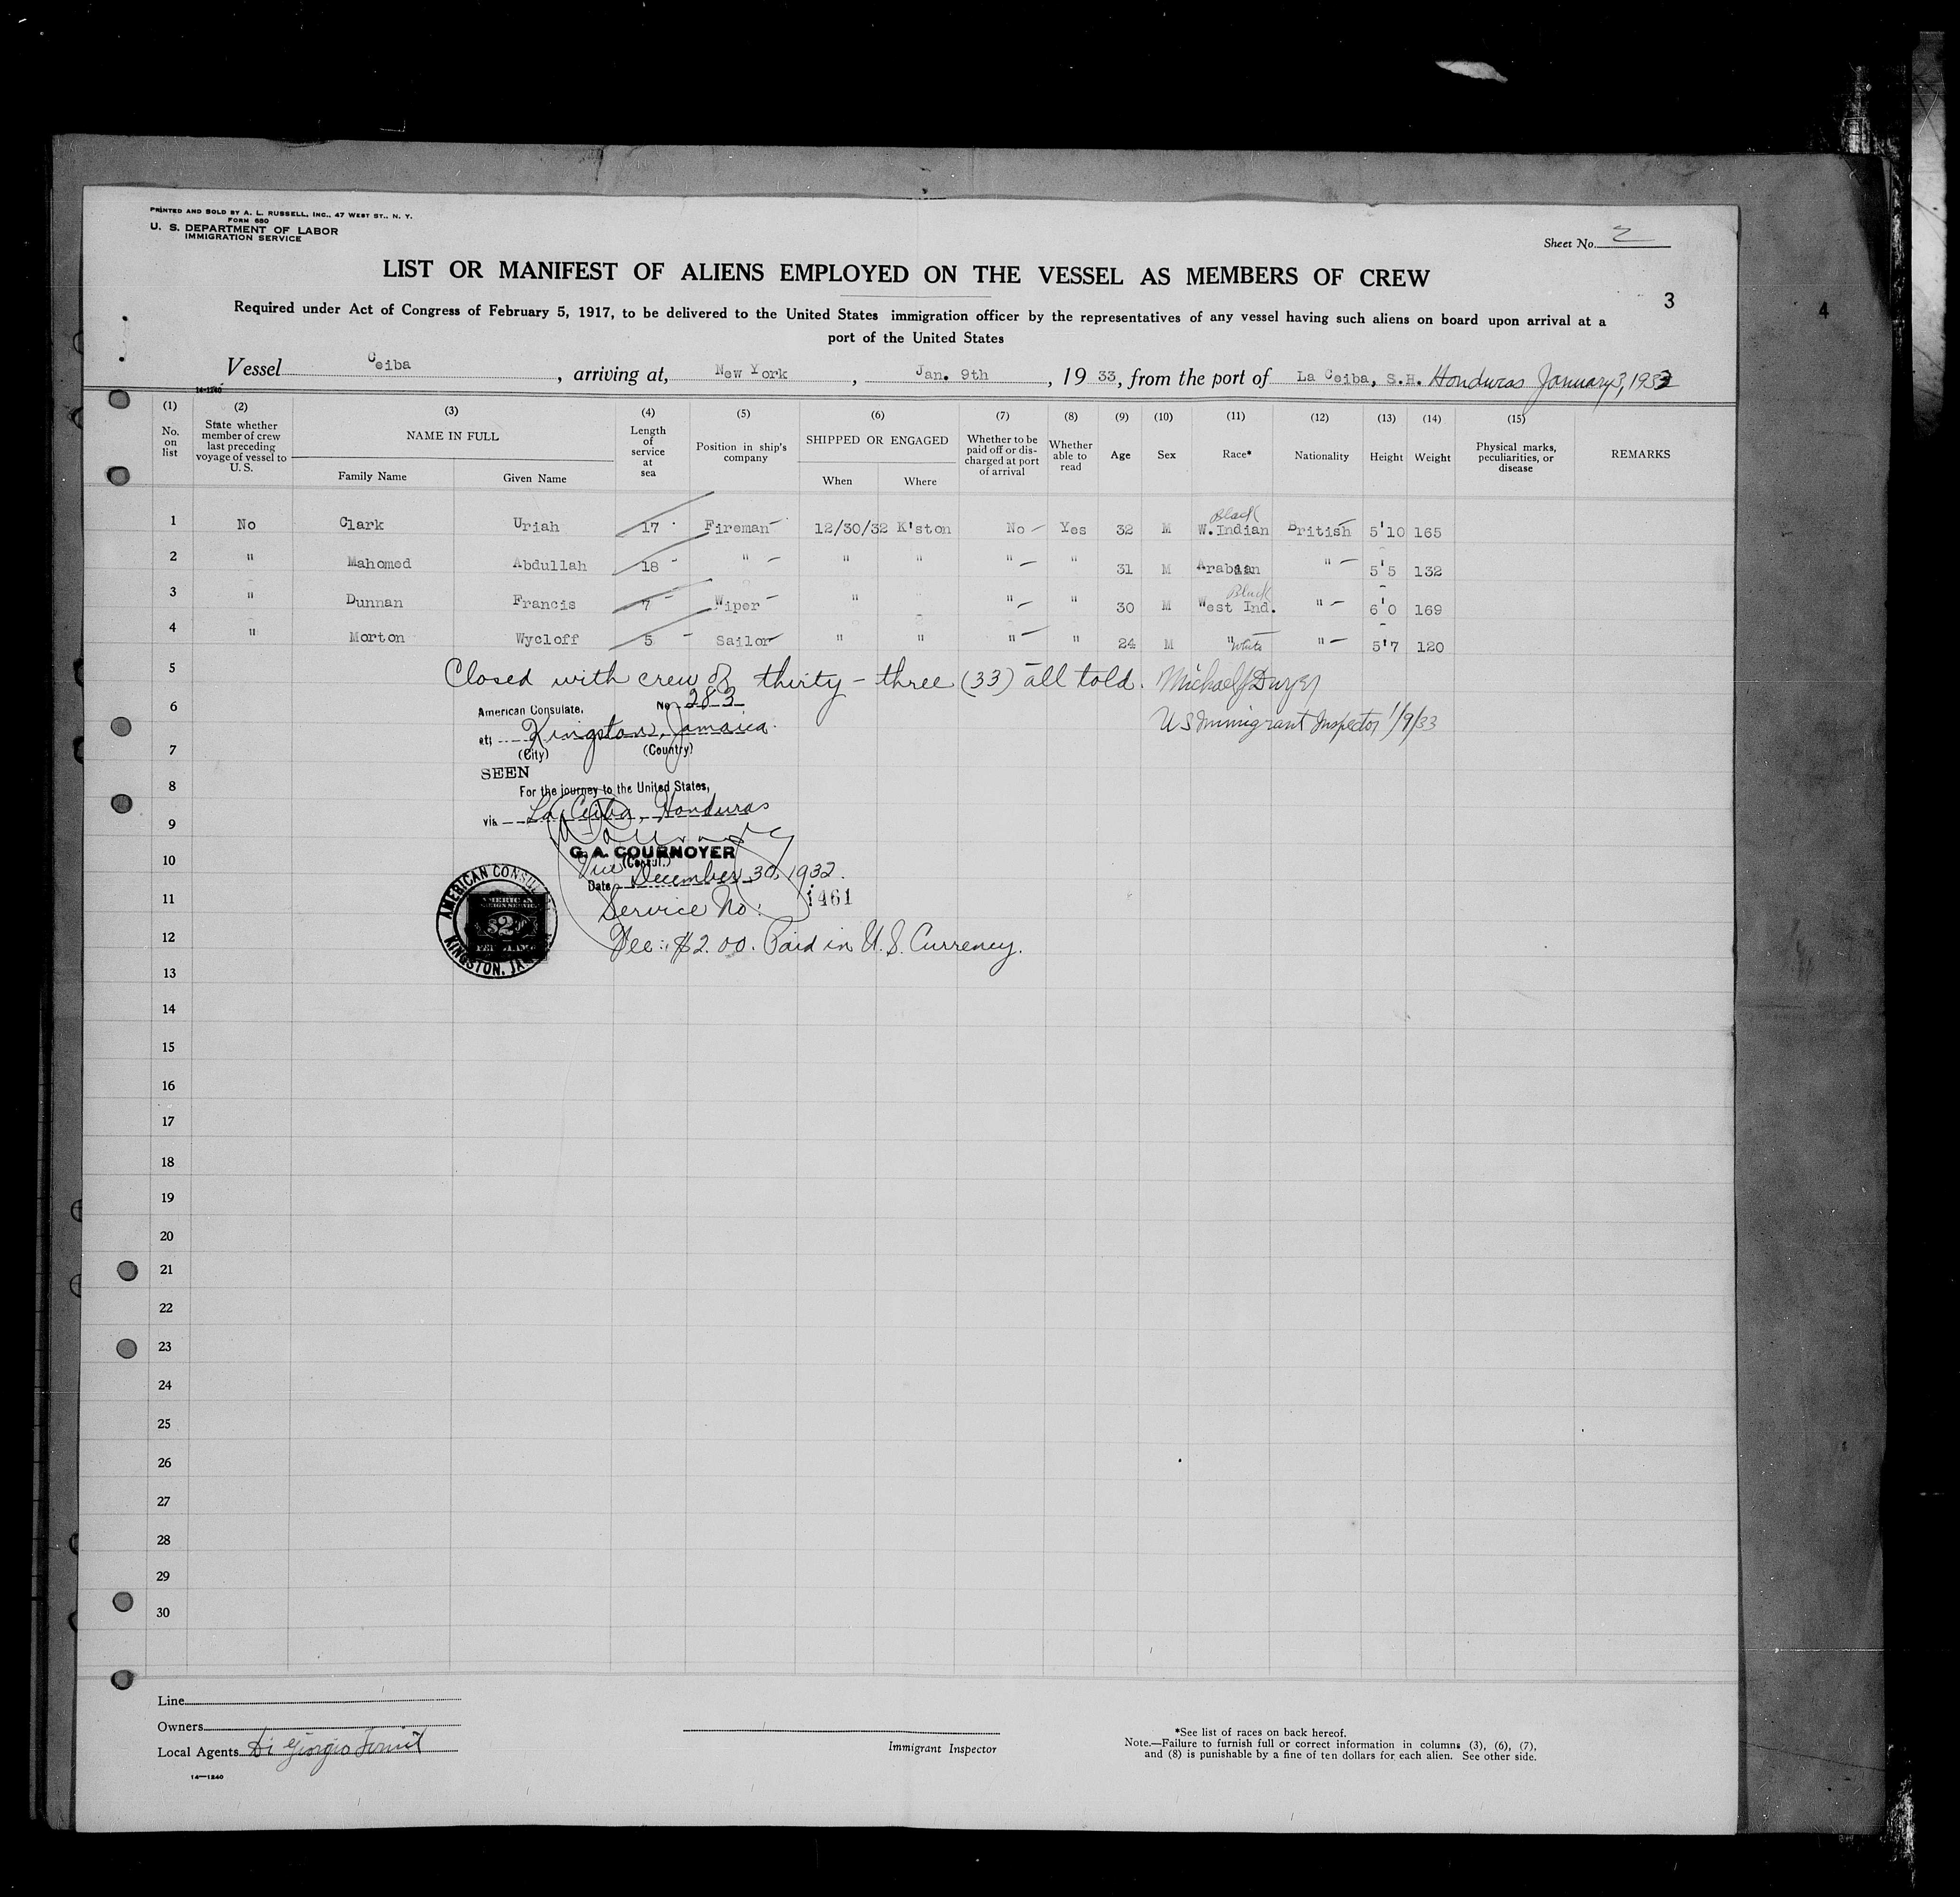 PRINTED AND SOLD BY A. L. RUSSELL, INC., 47 WEST ST., N. Y.
FORM 680
U. S. DEPARTMENT OF LABOR
IMMIGRATION SERVICE
Sheet No. 2
LIST OR MANIFEST OF ALIENS EMPLOYED ON THE VESSEL AS MEMBERS OF CREW
3
4
Required under Act of Congress of February 5, 1917, to be delivered to the United States immigration officer by the representatives of any vessel having such aliens on board upon arrival at a
port of the United States
Vessel Ceiba, arriving at, New York, Jan. 9th, 19 33, from the port of La Ceiba, S.H. Honduras January 3, 1933
14-1240
(1) (2) (3) (4) (5) (6) (7) (8) (9) (10) (11) (12) (13) (14) (15)
No. on list
State whether member of crew last preceding voyage of vessel to U. S.
NAME IN FULL
Family Name
Given Name
Length of service at sea
Position in ship's company
SHIPPED OR ENGAGED
When
Where
Whether to be paid off or discharged at port of arrival
Whether able to read
Age
Sex
Race*
Nationality
Height
Weight
Physical marks, peculiarities, or disease
REMARKS
Black
1 No Clark Uriah 17 Fireman 12/30/32 K'ston No Yes 32 M W.Indian British 5'10 165
2 " Mahomed Abdullah 18 " " " " " 31 M Arabian " 5'5 132
Black
3 " Dunnan Francis 7 Wiper " " " 30 M West Ind. " 6'0 169
4 " Morton Wycloff 5 Sailor " " " " 24 M " White " 5'7 120
5 Closed with crew of thirty-three (33) all told. Michael J Dwyer
6 US Immigrant Inspector 1/9/33
American Consulate, No. 283
at: Kingston, Jamaica.
(City) (Country)
7
SEEN
8 For the journey to the United States,
via La Ceiba, Honduras
9
G. A. COURNOYER
10 Vice (Consul.)
Date December 30, 1932.
11 Service No: 1461
12 Fee: $2.00. Paid in U.S. Currency.
AMERICAN CONSUL
KINGSTON, JA
AMERICAN
FOREIGN SERVICE
$2.00
FEE STAMP
13
14
15
16
17
18
19
20
21
22
23
24
25
26
27
28
29
30
Line
Owners
Local Agents Di Giorgio Fruit
14—1240
Immigrant Inspector
*See list of races on back hereof.
Note.—Failure to furnish full or correct information in columns (3), (6), (7),
and (8) is punishable by a fine of ten dollars for each alien. See other side.